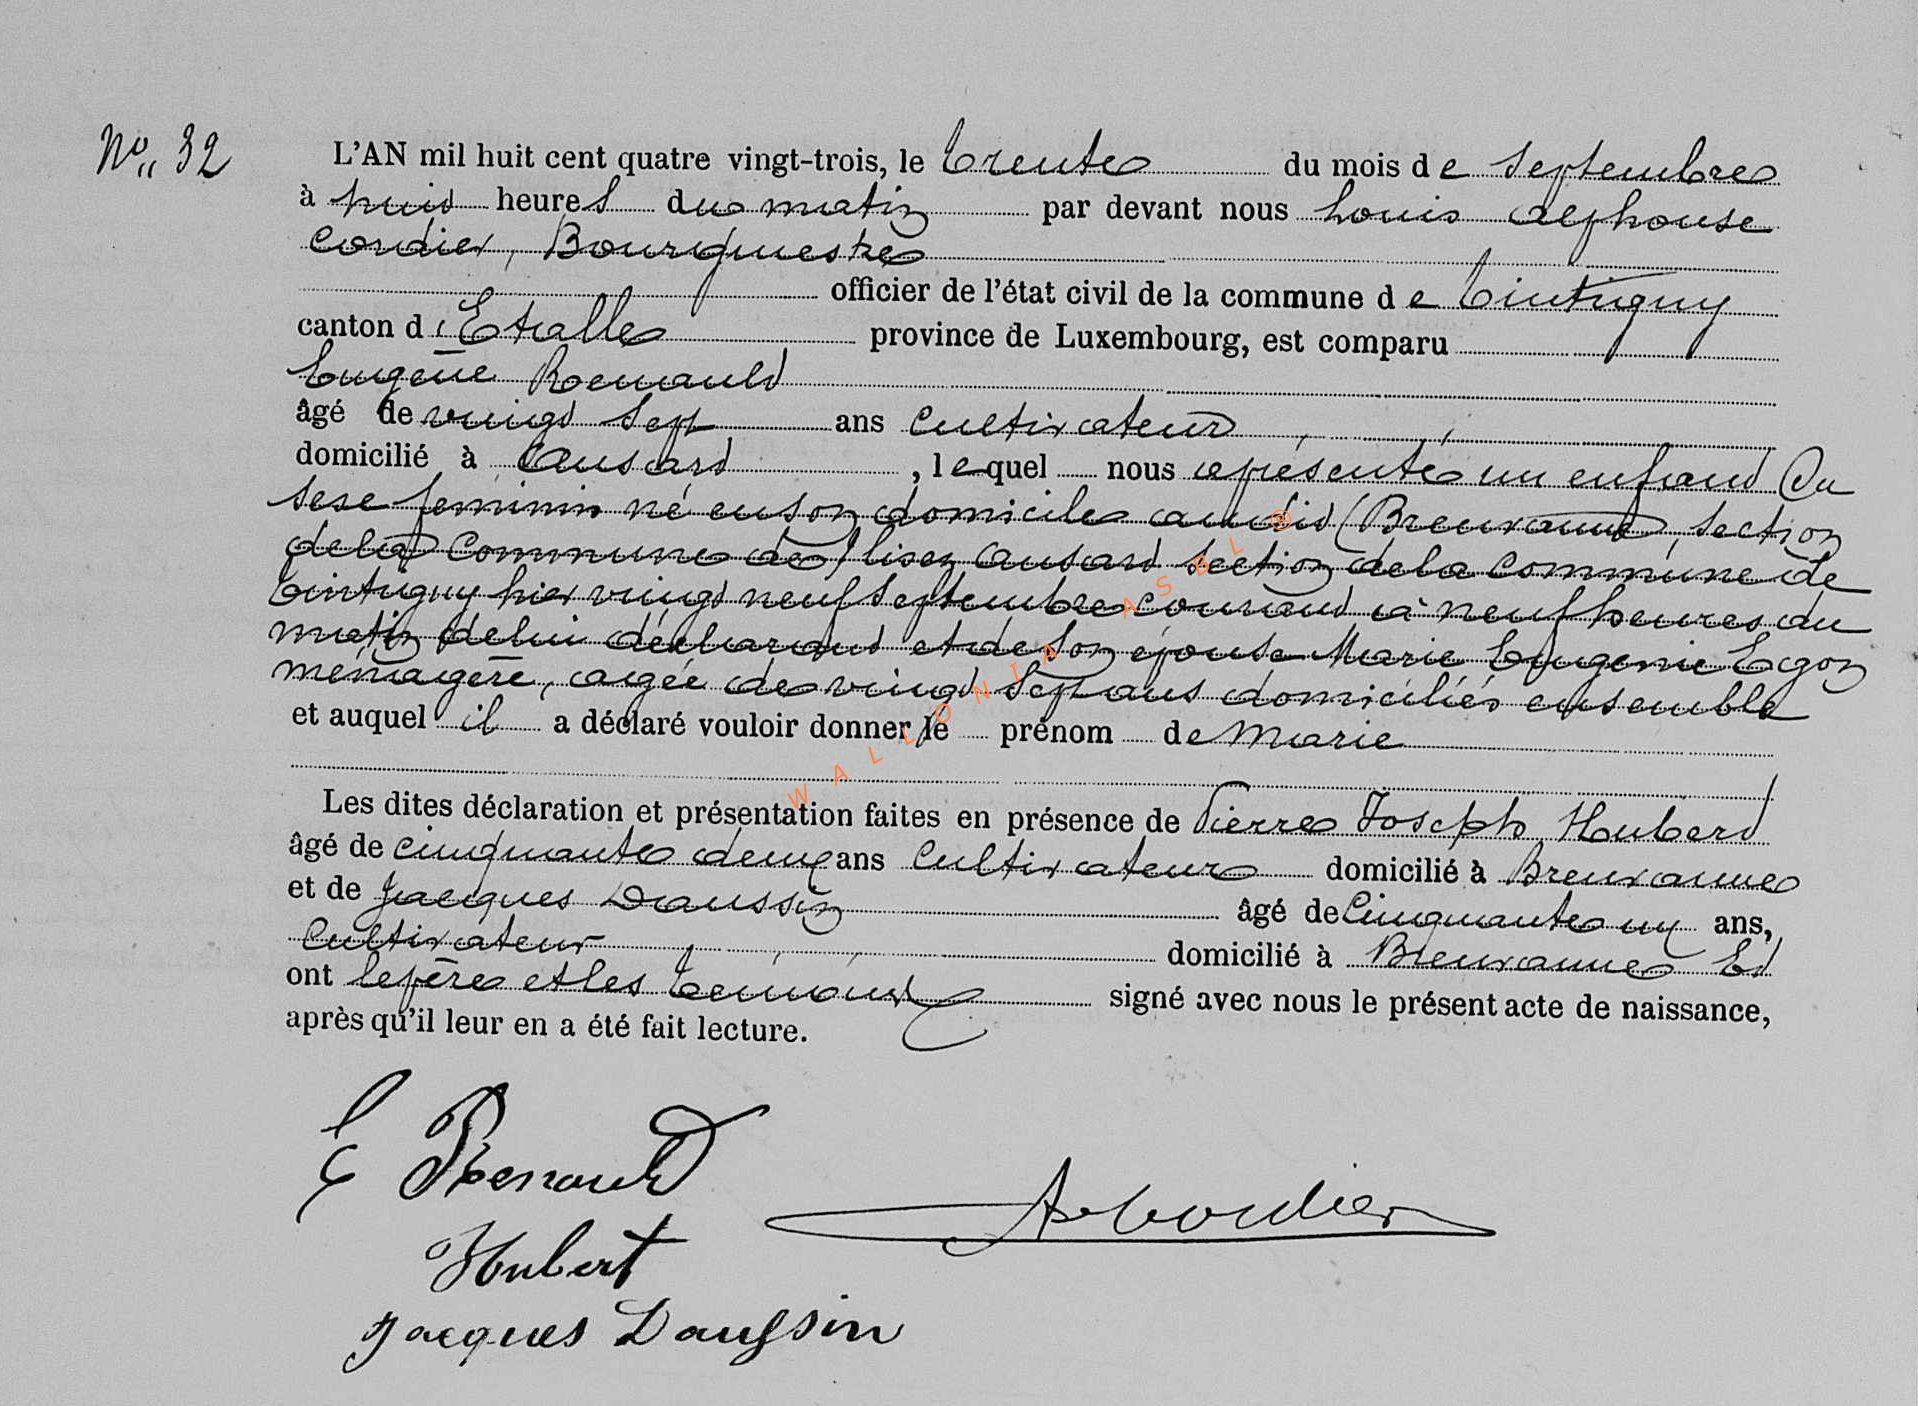 No. 32
L'AN mil huit cent quatre vingt-trois, le trente du mois de septembre
à huit heures du matin par devant nous Louis Alphonse
Cordier, Bourgmestre
officier de l'état civil de la commune de Tintigny
canton d'Etalle province de Luxembourg, est comparu
Eugène Renauld
âgé de vingt sept ans cultivateur
domicilié à Ansart, lequel nous a présenté un enfant du
sexe féminin né en son domicile audit (Breuvanne, section
de la commune de) lisez Ansart section de la commune de
Tintigny hier vingt neuf septembre courant à neuf heures du
matin de lui déclarant et de son épouse Marie Eugenie Egon
ménagère, agée de vingt sept ans domiciliés ensemble
et auquel il a déclaré vouloir donner le prénom de Marie
Les dites déclaration et présentation faites en présence de Pierre Joseph Hubert
âgé de cinquante deux ans cultivateur domicilié à Breuvanne
et de Jacques Daussin âgé de Cinquante un ans,
Cultivateur domicilié à Breuvanne Et
ont le père et les témoins signé avec nous le présent acte de naissance,
après qu'il leur en a été fait lecture.
E Renauld
A Cordier
Hubert
Jacques Daussin
WALLONIA ASBL ®